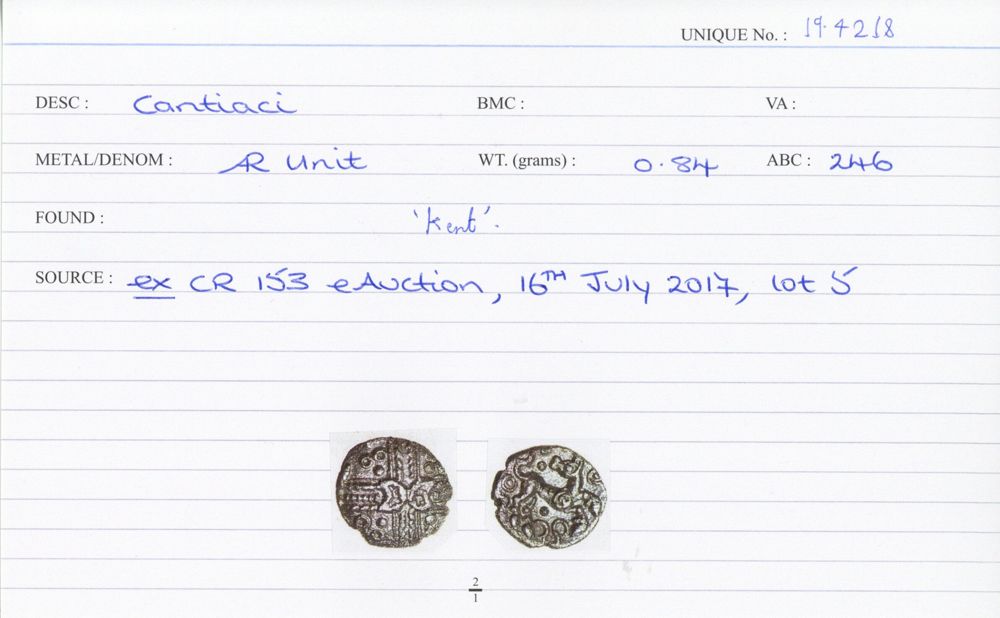 UNIQUE No. : 19.4218
DESC : Cantiaci BMC : VA :
METAL/DENOM : AR Unit WT. (grams) : 0.84 ABC : 246
FOUND : 'Kent'.
SOURCE : ex CR 153 eAuction, 16TH July 2017, lot 5
2
1